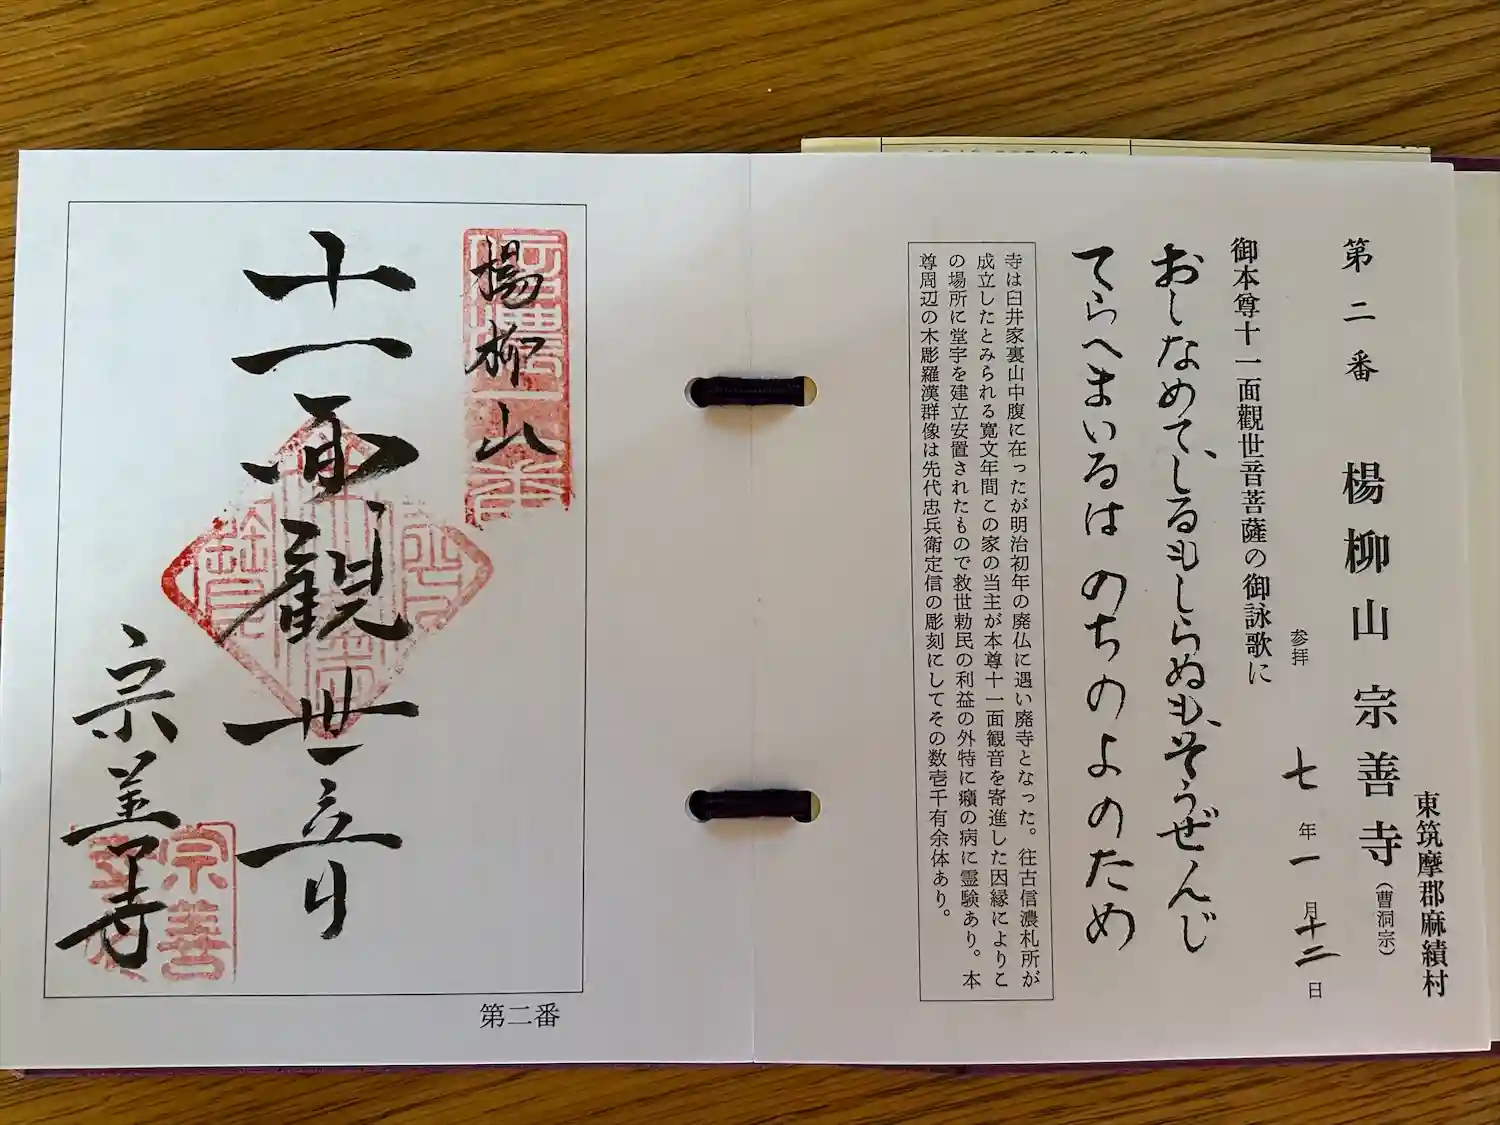 東筑摩郡麻績村
第二番 楊柳山 宗善寺（曹洞宗）
参拝 七年一月十二日
御本尊十一面觀世音菩薩の御詠歌に
おしなめて、しるもしらぬも、そうぜんじ
てらへまいるは のちのよのため
寺は臼井家裏山中腹に在ったが明治初年の廃仏に遇い廃寺となった。往古信濃札所が
成立したとみられる寛文年間この家の当主が本尊十一面観音を寄進した因縁によりこ
の場所に堂宇を建立安置されたもので救世勅民の利益の外特に癪の病に霊験あり。本
尊周辺の木彫羅漢群像は先代忠兵衛定信の彫刻にしてその数壱千有余体あり。
楊柳山
十一面観世音
宗善寺
宗善
第二番